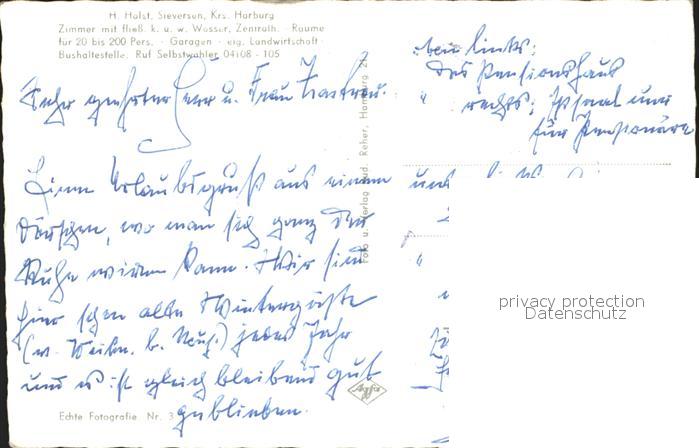 H. Holst, Sieversen, Krs. Harburg
Zimmer mit fließ. k. u. w. Wasser, Zentralh. · Räume
für 20 bis 200 Pers. · Garagen · eig. Landwirtschaft
Bushaltestelle. Ruf Selbstwähler 04108 - 105
oben links:
Das Pensionshaus
" rechts: Eßsaal nur
für Pensionäre
Sehr geehrter Herr u. Frau
Einen Urlaubsgruß aus einem
Dörfchen, wo man sich ganz der
Ruhe widmen kann. Wir sind
hier schon alte Wintergäste
(v. Weihn. b. Neuj.) jedes Jahr
und es ist gleichbleibend gut
geblieben.
unt
"
Foto u. Verlag Rud. Reher, Hamburg
Agfa
Echte Fotografie Nr. 3
privacy protection
Datenschutz